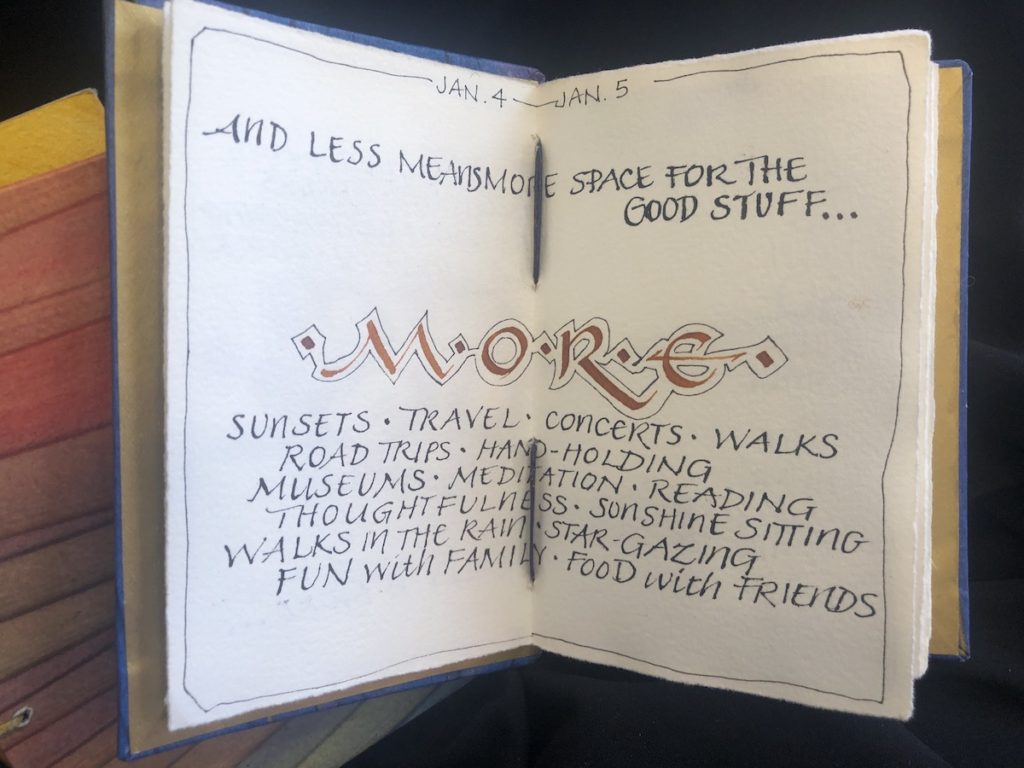 JAN. 4 — JAN. 5
AND LESS MEANS MORE SPACE FOR THE
GOOD STUFF...
·M·O·R·E·
SUNSETS · TRAVEL · CONCERTS · WALKS
ROAD TRIPS · HAND-HOLDING
MUSEUMS · MEDITATION · READING
THOUGHTFULNESS · SONSHINE SITTING
WALKS IN THE RAIN · STAR-GAZING
FUN with FAMILY · FOOD with FRIENDS